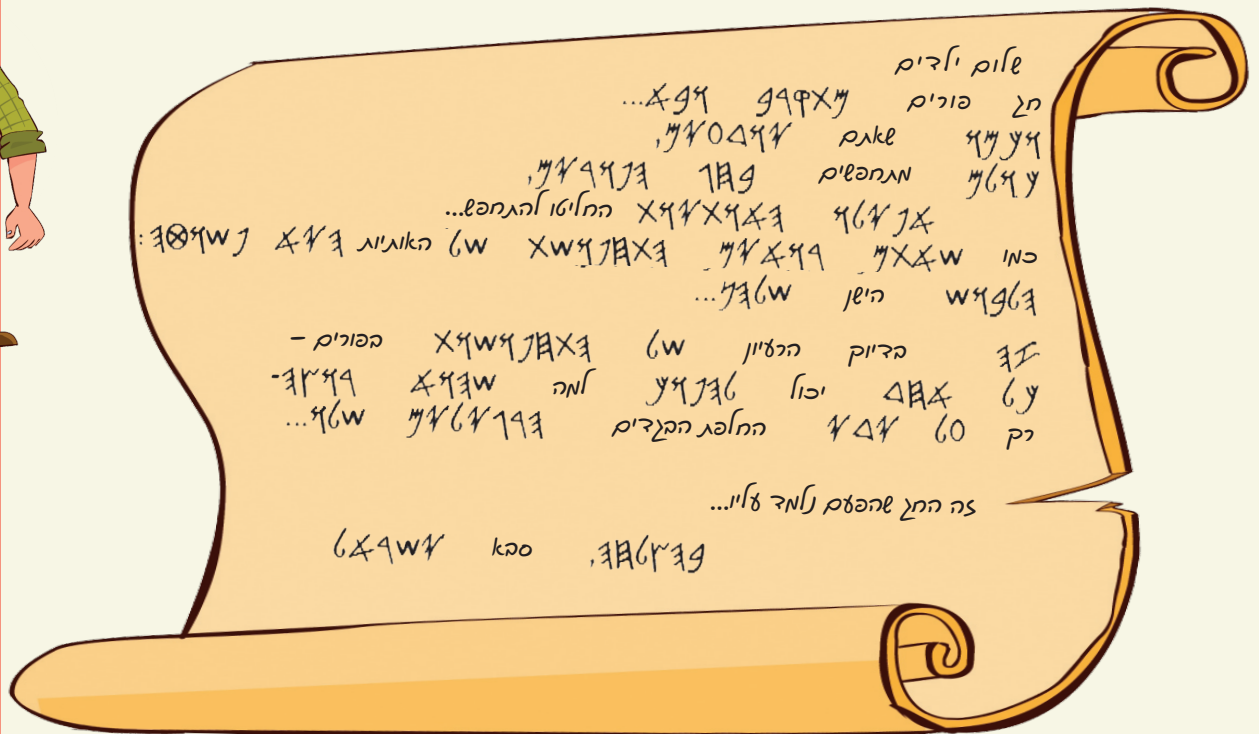 שלום ילדים
חג פורים 𐤌𐤕𐤒𐤓𐤁 𐤅𐤁𐤀...
𐤅𐤊𐤌𐤅 שאתם 𐤉𐤅𐤃𐤏𐤉𐤌,
𐤊𐤅𐤋𐤌 מתחפשים 𐤁𐤇𐤂 𐤄𐤐𐤅𐤓𐤉𐤌,
𐤀𐤐𐤉𐤋𐤅 𐤄𐤀𐤅𐤕𐤉𐤅𐤕 החליטו להתחפש...
כמו 𐤔𐤀𐤕𐤌 𐤓𐤅𐤀𐤉𐤌 𐤄𐤕𐤇𐤐𐤅𐤔𐤕 𐤔𐤋 האותיות 𐤄𐤉𐤀 𐤐𐤔𐤅𐤈𐤄:
𐤄𐤋𐤁𐤅𐤔 הישן 𐤔𐤋𐤄𐤍...
𐤆𐤄 בדיוק הרעיון 𐤔𐤋 𐤄𐤕𐤇𐤐𐤅𐤔𐤅𐤕 בפורים –
𐤊𐤋 𐤀𐤇𐤃 יכול 𐤋𐤄𐤐𐤅𐤊 למה 𐤔𐤄𐤅𐤀 𐤓𐤅𐤑𐤄-
רק 𐤏𐤋 𐤉𐤃𐤉 החלפת הבגדים 𐤄𐤓𐤂𐤉𐤋𐤉𐤌 𐤔𐤋𐤅...
זה החג שהפעם נלמד עליו...
𐤁𐤄𐤑𐤋𐤇𐤄, סבא 𐤉𐤔𐤓𐤀𐤋